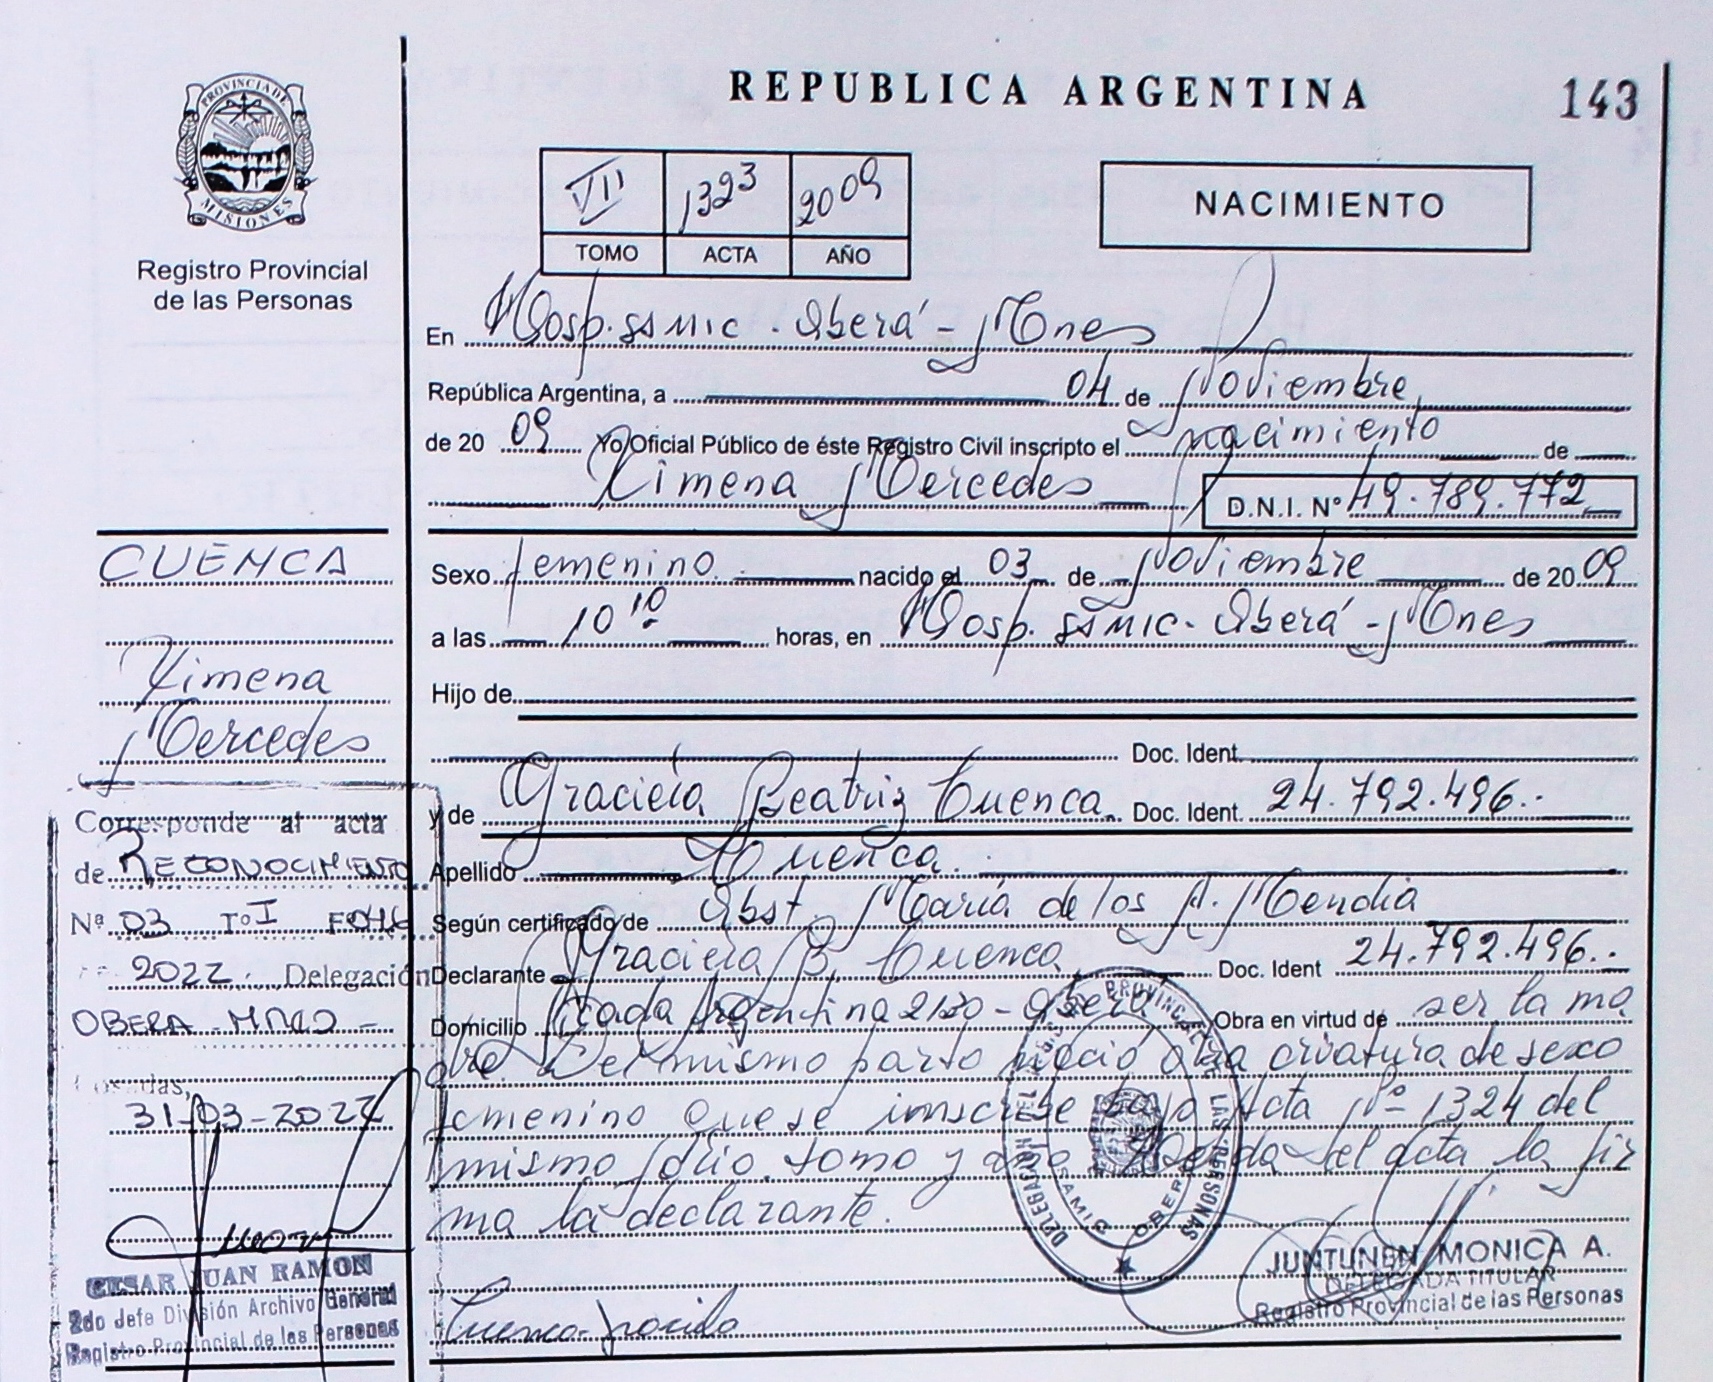 REPUBLICA ARGENTINA
143
PROVINCIA DE
MISIONES
Registro Provincial
de las Personas
VII 1323 2009
TOMO ACTA AÑO
NACIMIENTO
En Hosp. SAMIC - Oberá - Mnes
República Argentina, a 04 de Noviembre
de 20 09 Yo Oficial Público de éste Registro Civil inscripto el nacimiento de
Ximena Mercedes D.N.I. Nº 49.789.772
CUENCA
Ximena
Mercedes
Sexo femenino nacido el 03 de Noviembre de 20 09
a las 10 10 horas, en Hosp. SAMIC - Oberá - Mnes
Hijo de
Doc. Ident.
y de Graciela Beatriz Cuenca. Doc. Ident. 24.792.496..
Apellido Cuenca.
Según certificado de Obst. María de los A. Mendia
Declarante Graciela B. Cuenca Doc. Ident 24.792.496..
Domicilio Argentina Oberá Obra en virtud de ser la ma
dre. Del mismo parto nació otra criatura de sexo
femenino que se inscribe bajo Acta Nº 1324 del
mismo folio, tomo y año. del acta la fir
ma la declarante.
Corresponde al acta
de RECONOCIMIENTO
Nª 03 Tº I Fº
2022. Delegación
OBERA - MNES -
Posadas,
31-03-2022
CESAR JUAN RAMON
2do Jefe División Archivo General
Registro Provincial de las Personas
DELEGACIÓN DEL REGISTRO PROVINCIAL DE LAS PERSONAS
SAMIC OBERA
Cuenca
JUNTUNEN MONICA A.
DELEGADA TITULAR
Registro Provincial de las Personas